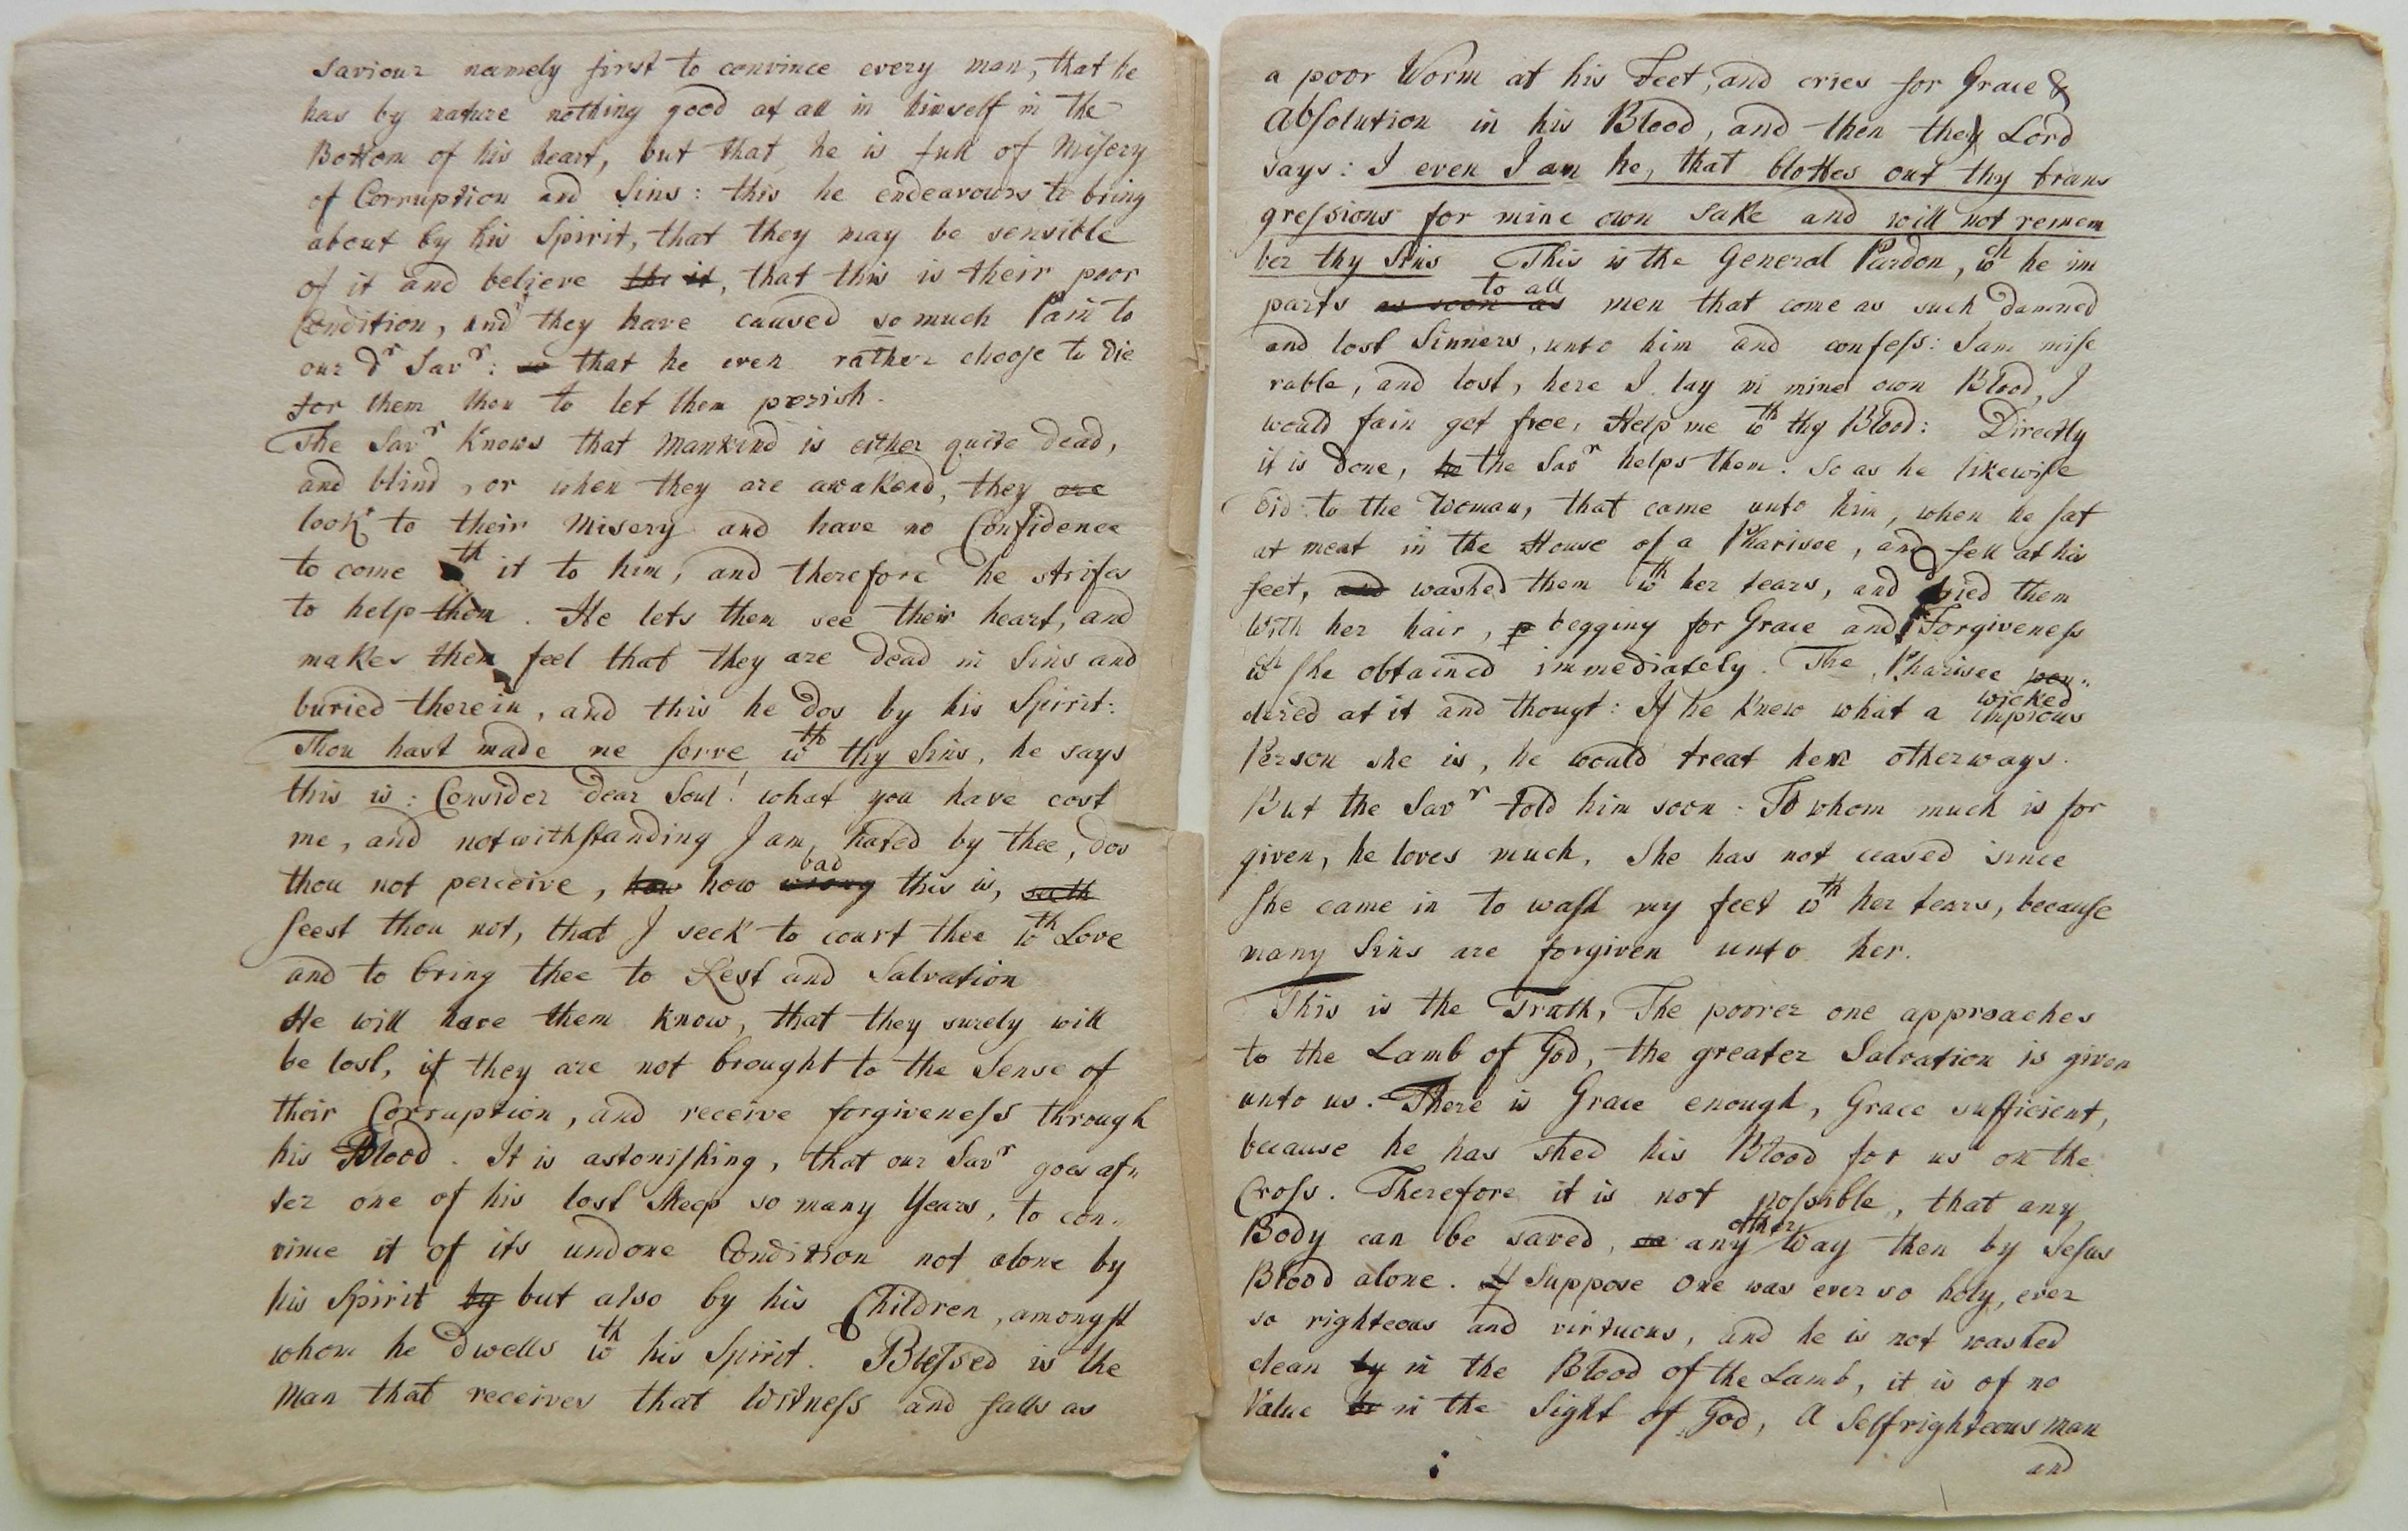 Saviour namely first to convince every man, that he
has by nature nothing good at all in himself in the
Bottom of his heart, but that he is full of Misery
of Corruption and Sins: this he endeavours to bring
about by his Spirit, that they may be sensible
of it and believe the it, that this is their poor
Condition, and they have caused so much Pain to
our dr Savr: so that he even rather choose to die
for them then to let them perish.
The Savr knows that Mankind is either quite dead,
and blind, or when they are awakend, they are
look to their Misery and have no Confidence
to come wth it to him, and therefore he strifes
to help them. He lets them see their heart, and
makes them feel that they are dead in Sins and
buried therein, and this he dos by his Spirit:
Thou hast made me serve wth thy Sins, he says
this is: Consider dear Soul! what you have cost
me, and notwithstanding I am hated by thee, dos
thou not perceive, how how wrong bad this is, seeth
seest thou not, that I seek to court thee wth Love
and to bring thee to Rest and Salvation
He will have them know, that they surely will
be lost, if they are not brought to the Sense of
their Corruption, and receive forgiveness through
his Blood. It is astonishing, that our Savr goes af=
ter one of his lost sheep so many Years, to con=
vince it of its undone Condition not alone by
his Spirit by but also by his Children, amongst
whom he dwells wth his Spirit. Blessed is the
Man that receives that Witness and falls as
a poor Worm at his Feet, and cries for Grace &
Absolution in his Blood, and then they Lord
says: I even I am he, that blottes out thy trans
gressions for mine own sake and will not remem
ber thy Sins This is the General Pardon, wch he im
parts as soon as to all men that come as such damned
and lost Sinners, unto him and confess: I am mise
rable, and lost, here I lay in mine own Blood, I
would fain get free, Help me wth thy Blood: Directly
it is done, he the Savr helps them. So as he likewise
did to the Woman, that came unto him, when he sat
at meat in the House of a Pharisee, and fell at his
feet, and washed them wth her tears, and dried them
with her hair, p begging for Grace and Forgiveness
wch she obtained immediately. The Pharisee pon=
dered at it and thougt: If he knew what a impious wicked
Person she is, he would treat her otherways.
But the Savr told him soon: To whom much is for
given, he loves much. She has not ceased since
she came in to wash my feet wth her tears, because
many Sins are forgiven unto her.
This is the Truth, The poorer one approaches
to the Lamb of God, the greater Salvation is given
unto us. There is Grace enough, Grace sufficient,
because he has shed his Blood for us on the
Cross. Therefore it is not possible, that any
Body can be saved, so any other Way then by Jesus
Blood alone. If Suppose one was ever so holy, ever
so righteous and virtuous, and he is not washed
clean by in the Blood of the Lamb, it is of no
Value be in the Sight of God, A Selfrighteous man
and